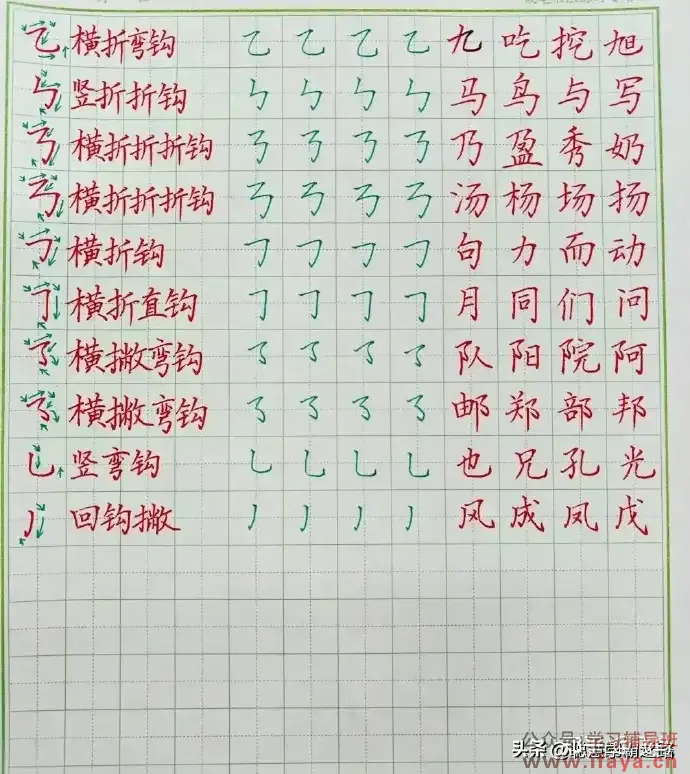 横折弯钩 乙 乙 乙 乙 九 吃 挖 旭
竖折折钩 ㄣ ㄣ ㄣ ㄣ 马 鸟 与 写
横折折折钩 𠄎 𠄎 𠄎 𠄎 乃 盈 秀 奶
横折折折钩 𠄎 𠄎 𠄎 𠄎 汤 杨 场 扬
横折钩 ㇆ ㇆ ㇆ ㇆ 句 力 而 动
横折直钩 ㇆ ㇆ ㇆ ㇆ 月 同 们 问
横撇弯钩 ㇌ ㇌ ㇌ ㇌ 队 阳 院 阿
横撇弯钩 ㇌ ㇌ ㇌ ㇌ 邮 郑 部 邦
竖弯钩 乚 乚 乚 乚 也 兄 孔 光
回钩撇 丿 丿 丿 丿 风 成 凤 戊
公众号:学习辅导班
头条
www.lfaya.cn